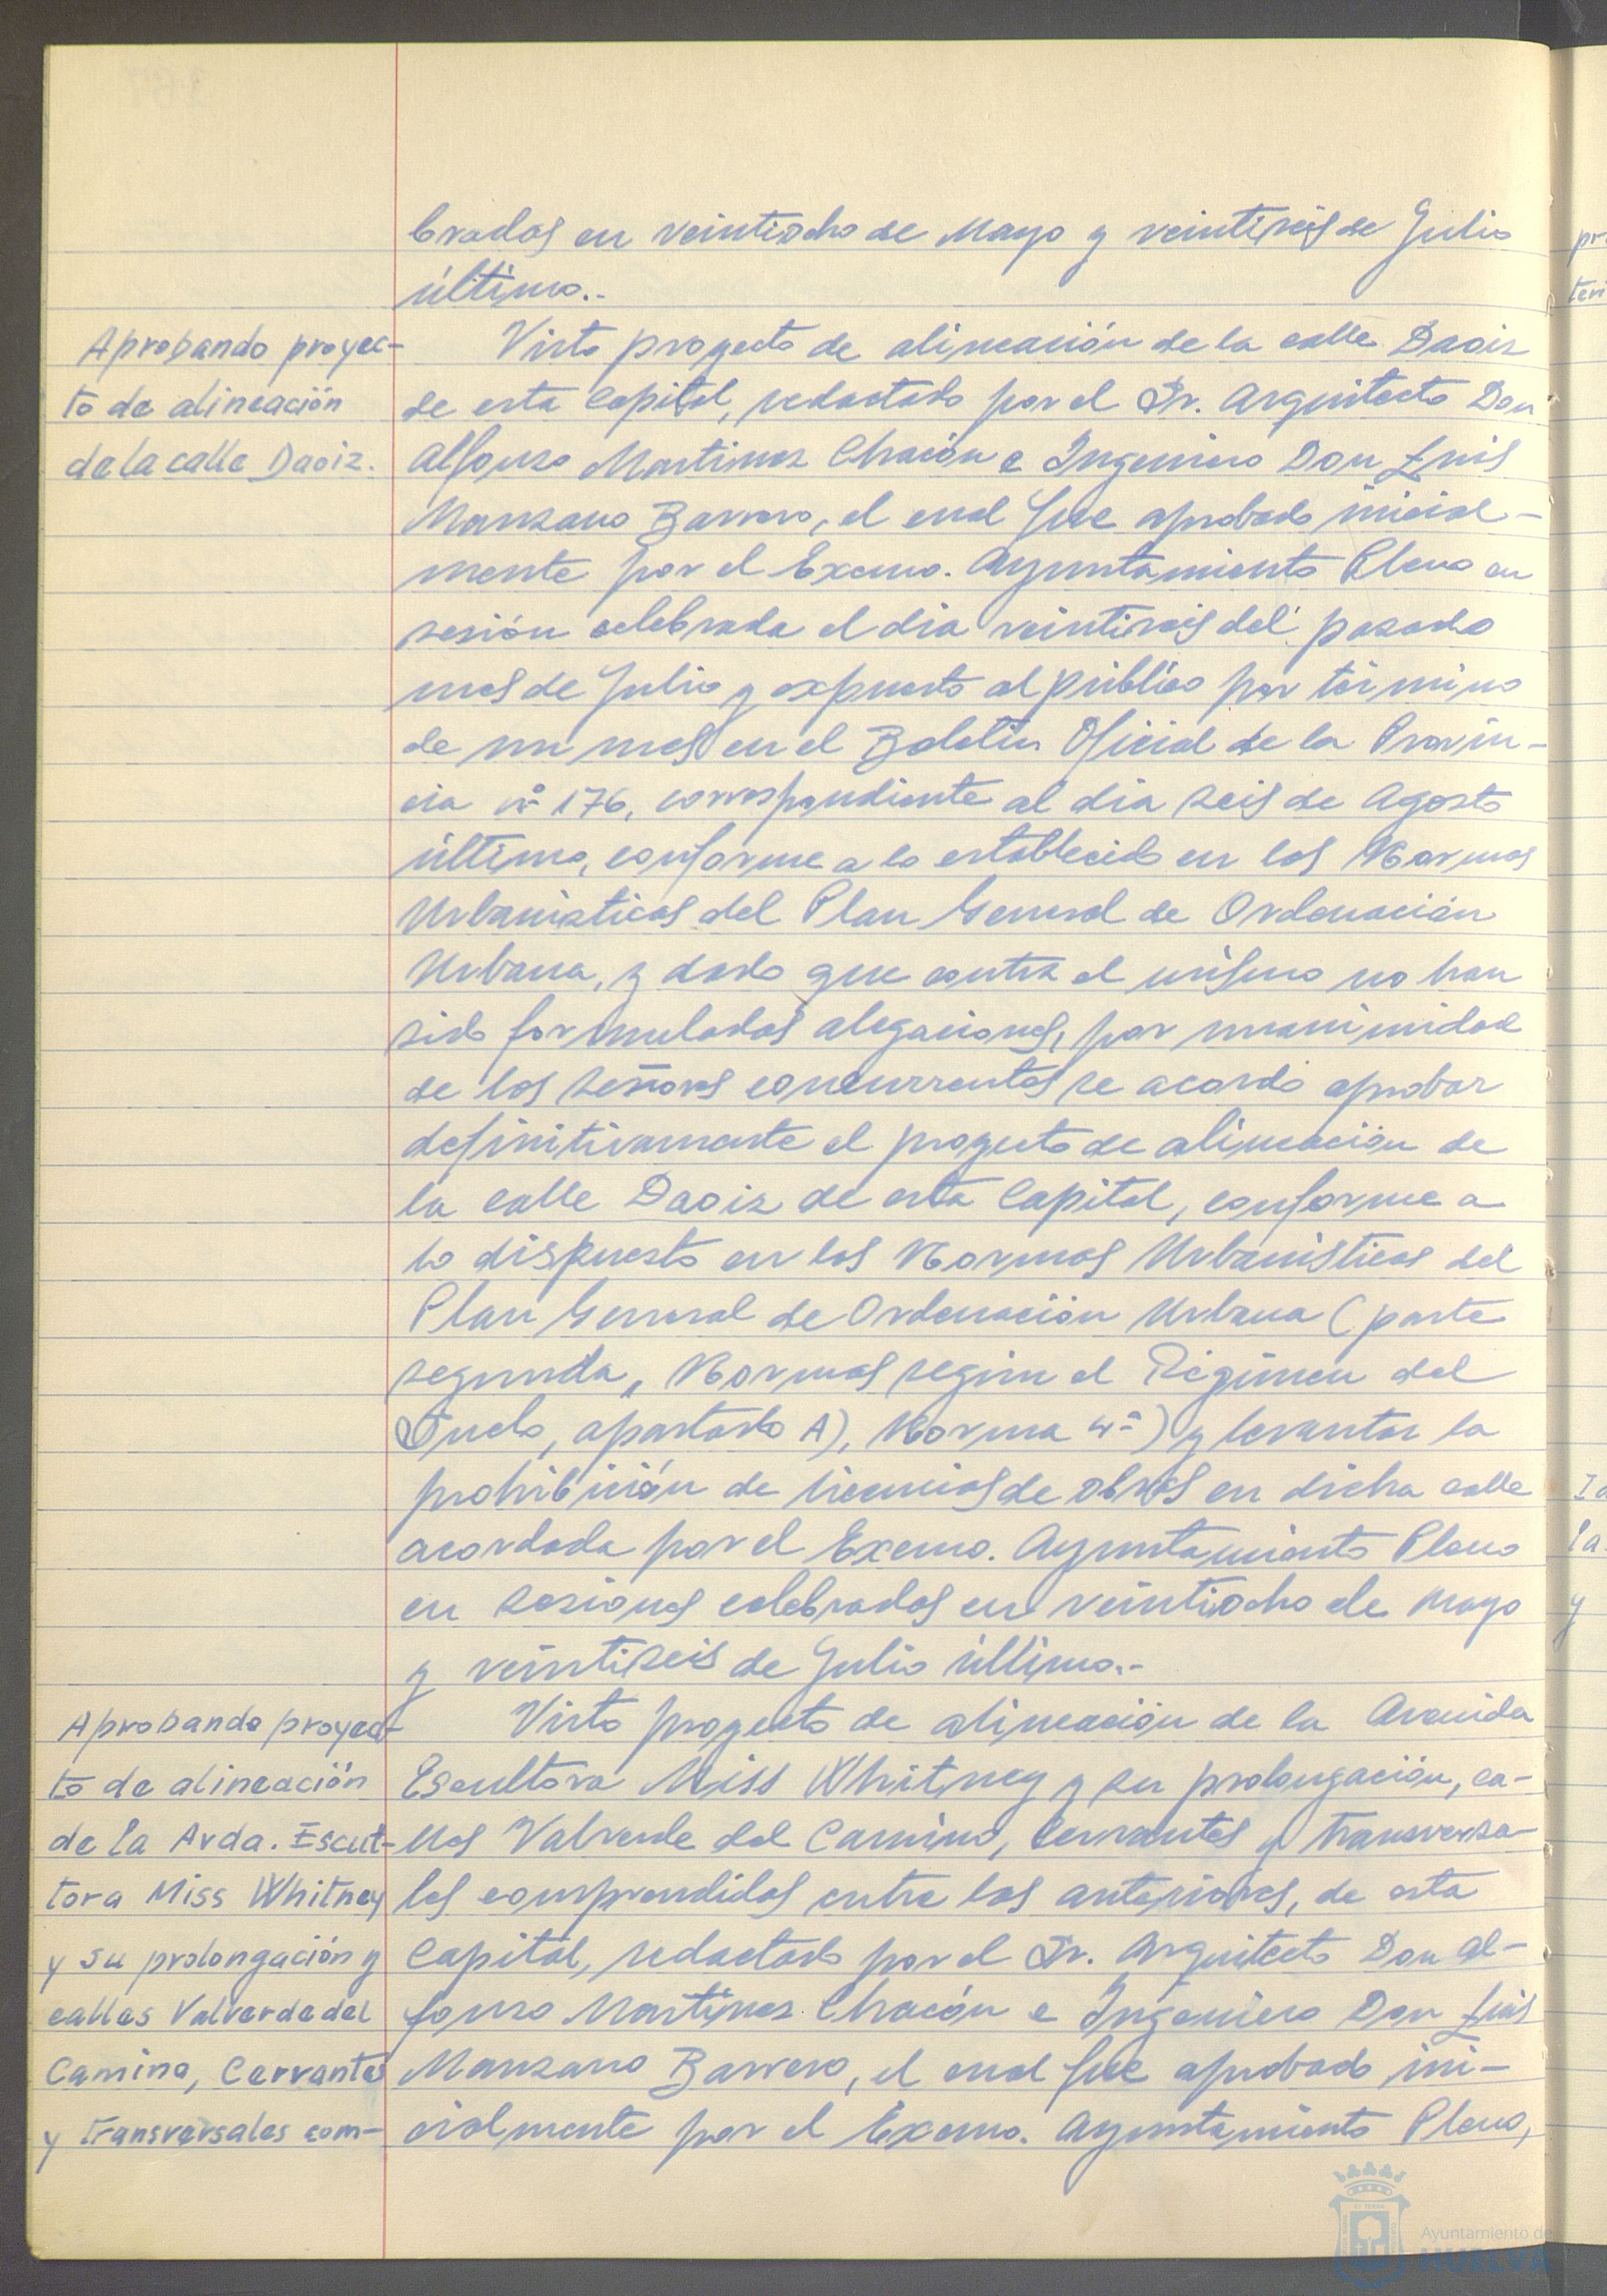 bradas en veintiocho de Mayo y veintiseis de Julio
último.-
Aprobando proyec-
to de alineación
de la calle Daoiz.
Visto proyecto de alineación de la calle Daoiz
de esta Capital, redactado por el Sr. Arquitecto Don
Alfonso Martinez Chacón e Ingeniero Don Luis
Manzano Barrero, el cual fue aprobado inicial-
mente por el Excmo. Ayuntamiento Pleno en
sesión celebrada el dia veintiseis del pasado
mes de Julio y expuesto al público por término
de un mes en el Boletin Oficial de la Provin-
cia nº 176, correspondiente al dia seis de Agosto
último, conforme a lo establecido en las Normas
Urbanisticas del Plan General de Ordenación
Urbana, y dado que contra el mismo no han
sido formuladas alegaciones, por unanimidad
de los señores concurrentes se acordó aprobar
definitivamente el proyecto de alineación de
la calle Daoiz de esta Capital, conforme a
lo dispuesto en las Normas Urbanisticas del
Plan General de Ordenación Urbana (parte
segunda, Normas según el Régimen del
Suelo, apartado A), Norma 4ª) y levantar la
prohibición de licencias de obras en dicha calle
acordada por el Excmo. Ayuntamiento Pleno
en sesiones celebradas en veintiocho de Mayo
y veintiseis de Julio último.-
Aprobando proyec-
to de alineación
de la Avda. Escul-
tora Miss Whitney
y su prolongación y
calles Valverde del
Camino, Cervantes
y transversales com-
Visto proyecto de alineación de la Avenida
Escultora Miss Whitney y su prolongación, ca-
lles Valverde del Camino, Cervantes y transversa-
les comprendidas entre las anteriores, de esta
Capital, redactado por el Sr. Arquitecto Don Al-
fonso Martinez Chacón e Ingeniero Don Luis
Manzano Barrero, el cual fue aprobado ini-
cialmente por el Excmo. Ayuntamiento Pleno,
Ayuntamiento de
HUELVA